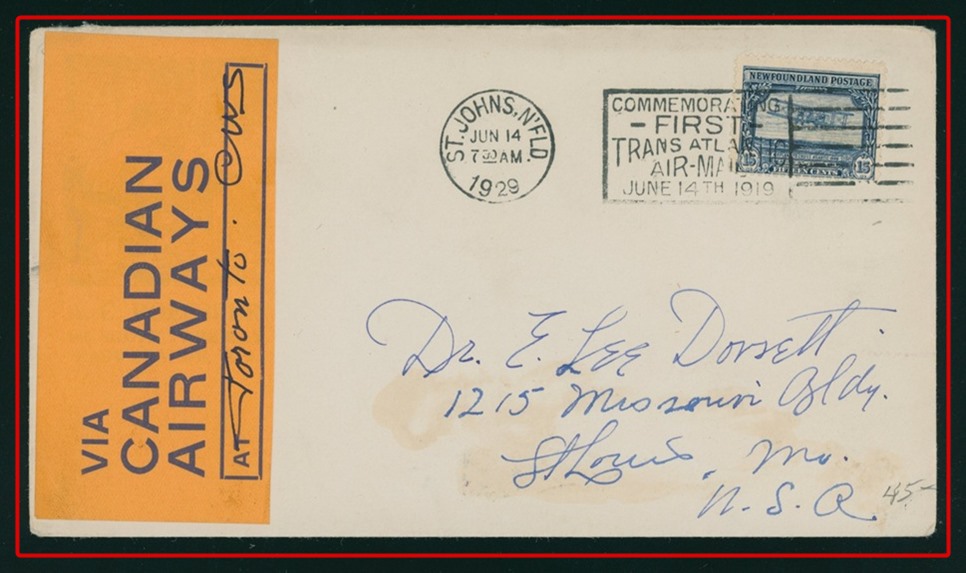 VIA
CANADIAN
AIRWAYS
AT Toronto.
ST. JOHNS, N'FLD
JUN 14
7 30 AM.
1929
COMMEMORATING
- FIRST -
TRANS ATLANTIC
AIR-MAIL
JUNE 14TH 1919
NEWFOUNDLAND POSTAGE
15 15
FIFTEEN CENTS
Dr. E. Lee Dorsett
1215 Missouri Bldg.
St Louis, Mo.
U.S.A.
45-